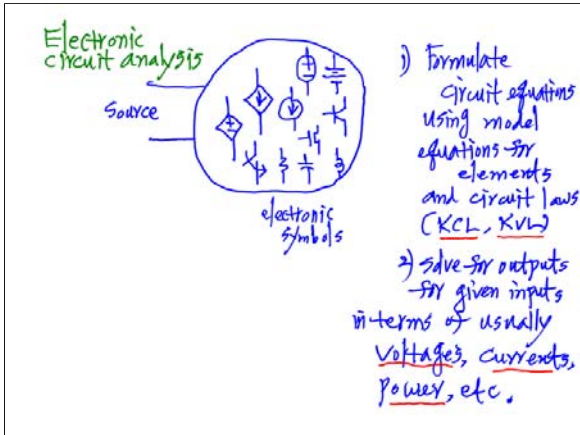 Electronic
circuit analysis
Source
electronic
symbols
1) Formulate
circuit equations
using model
equations for
elements
and circuit laws
(KCL, KVL)
2) Solve for outputs
for given inputs
in terms of usually
voltages, currents,
power, etc.